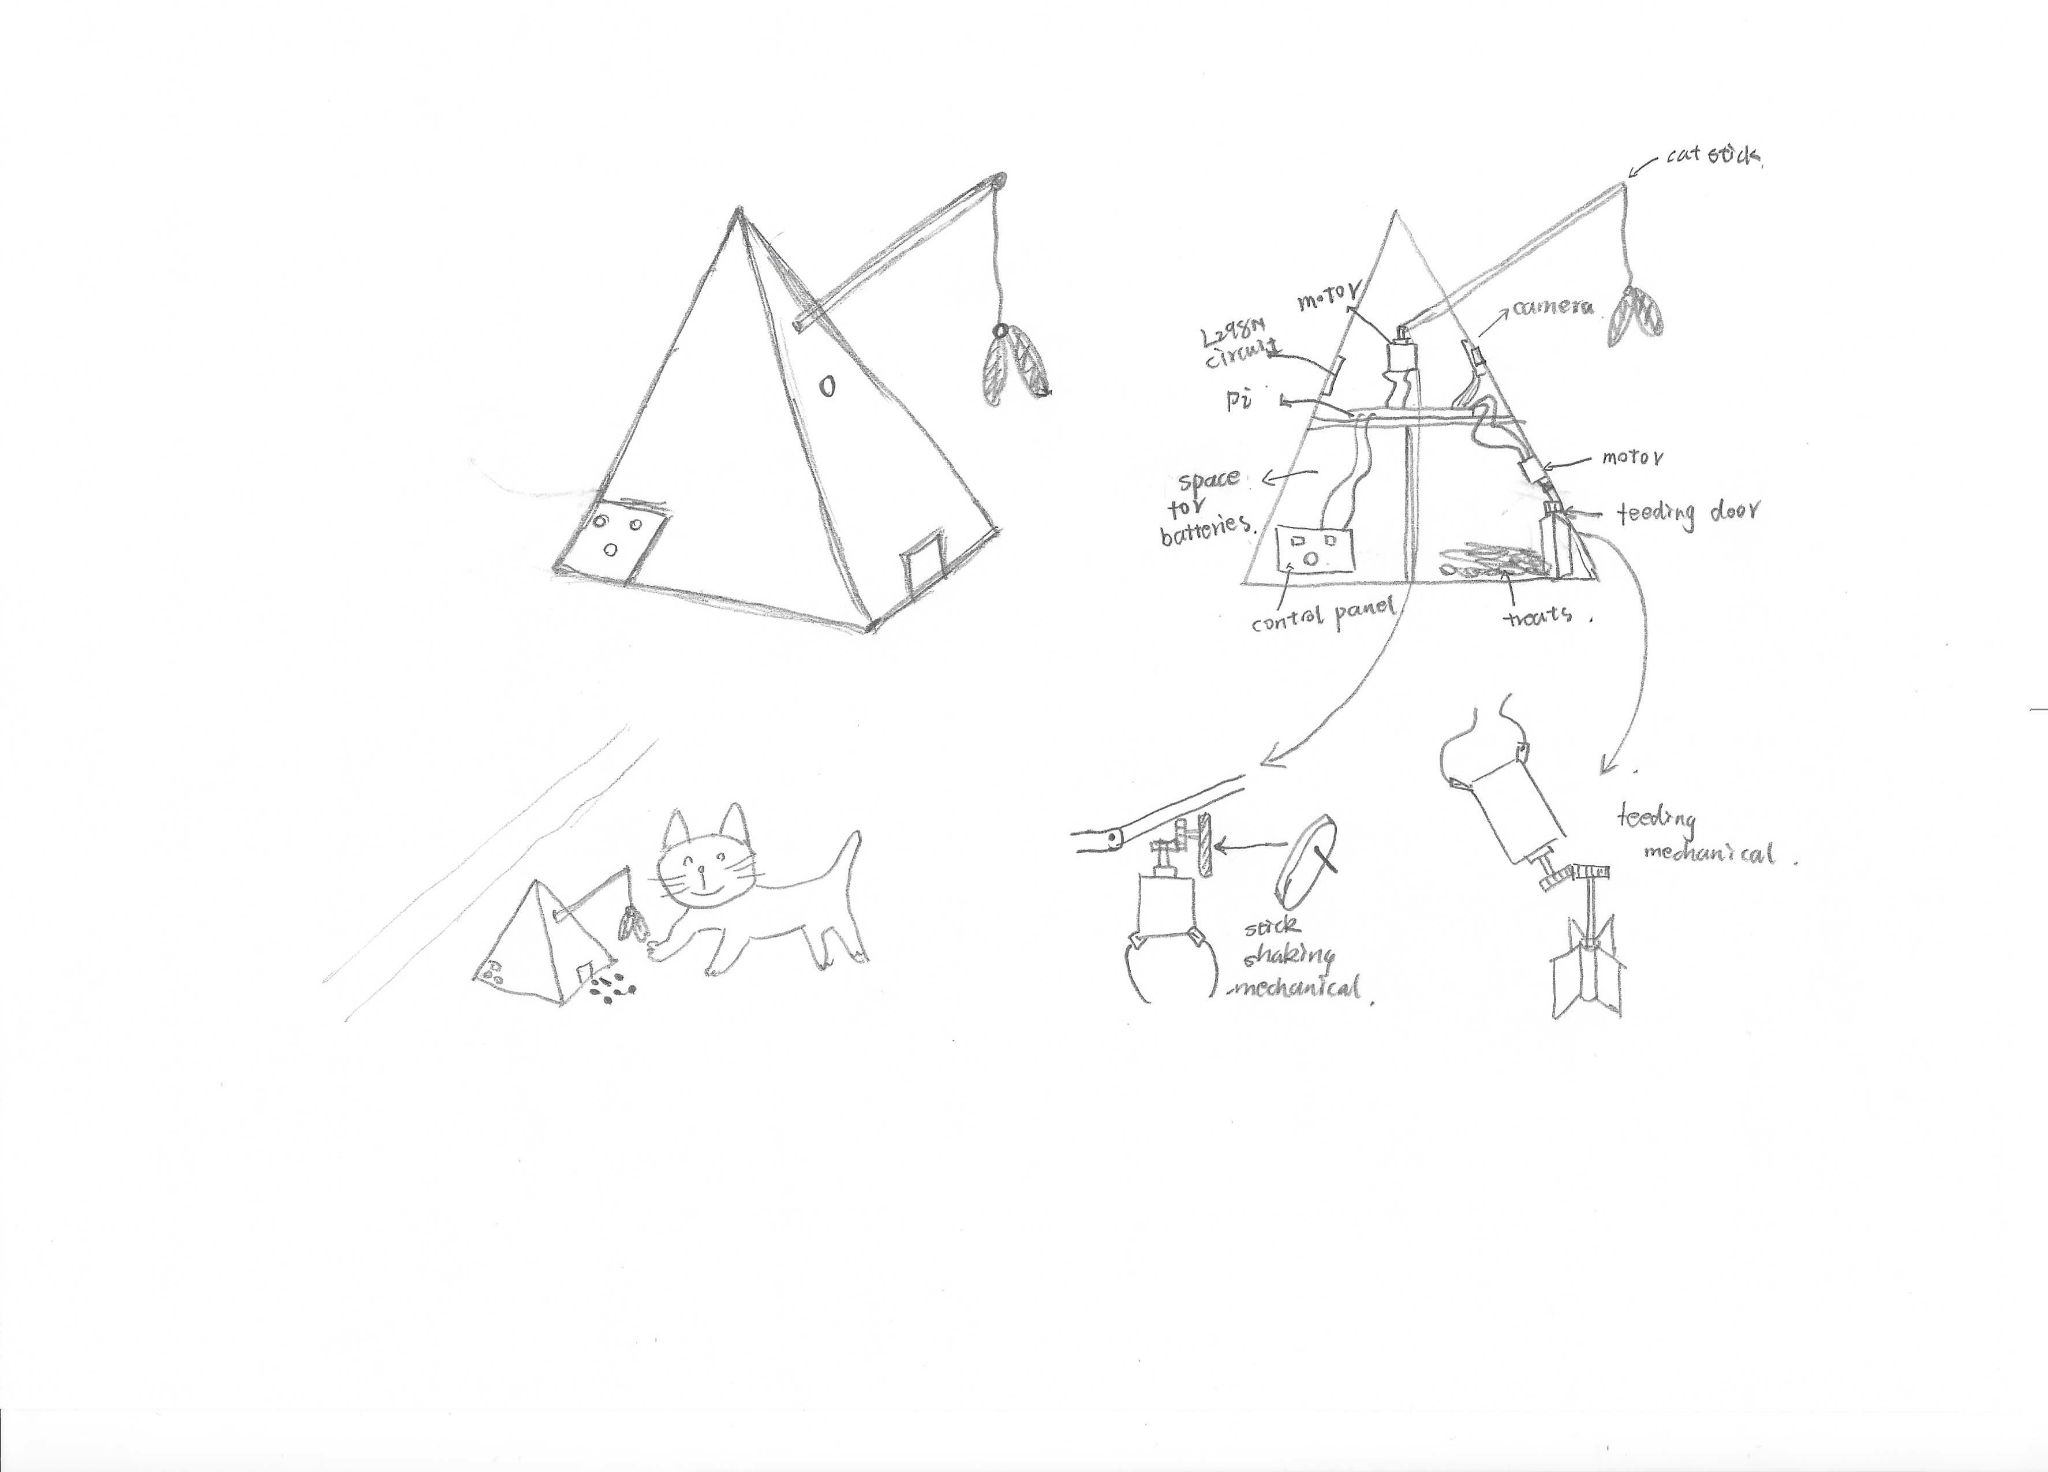 cat stick.
motor
camera
L298N
circuit
Pi
motor
space
for
batteries.
feeding door
control panel
treats.
feeding
mechanical.
stick
shaking
mechanical.